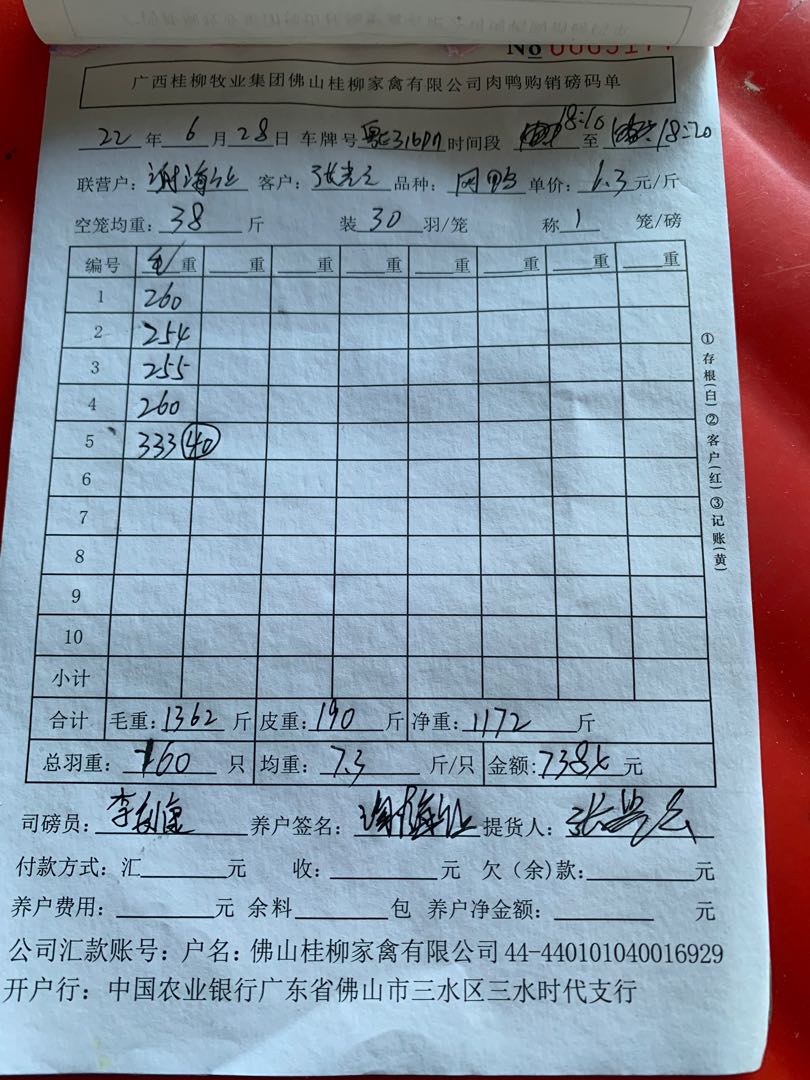 No 0005177
广西桂柳牧业集团佛山桂柳家禽有限公司肉鸭购销磅码单
22年6月28日 车牌号 时间段 18:10至 18:20
联营户: 客户: 品种: 单价:6.3元/斤
空笼均重:38斤 装30羽/笼 称1笼/磅
编号 毛重 重 重 重 重 重 重 重
1 260
2 254
3 255
4 260
5 333 40
6
7
8
9
10
小计
合计 毛重:1362斤 皮重:190斤 净重:1172斤
总羽重:160只 均重:7.3斤/只 金额:738元
司磅员: 养户签名: 提货人:
付款方式:汇 元 收: 元 欠(余)款: 元
养户费用: 元 余料 包 养户净金额: 元
公司汇款账号:户名:佛山桂柳家禽有限公司44-440101040016929
开户行:中国农业银行广东省佛山市三水区三水时代支行
①存根(白)②客户(红)③记账(黄)